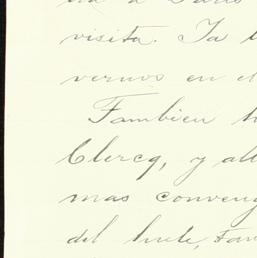 a Paris
visita. Ya
vernos en el
Tambien
Clercq, y all
mas conveng
del huele, Tam